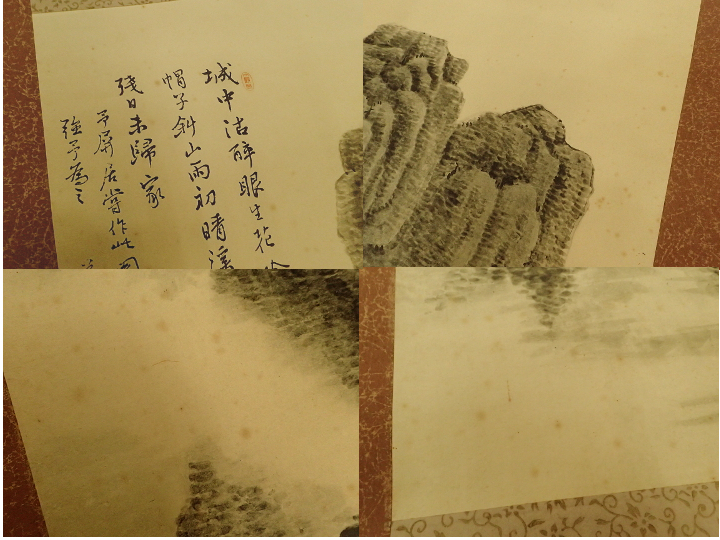 城中沽醉眼生花
帽子斜山雨初晴溪
殘日未歸家
予屏居嘗作此圖
強予為之